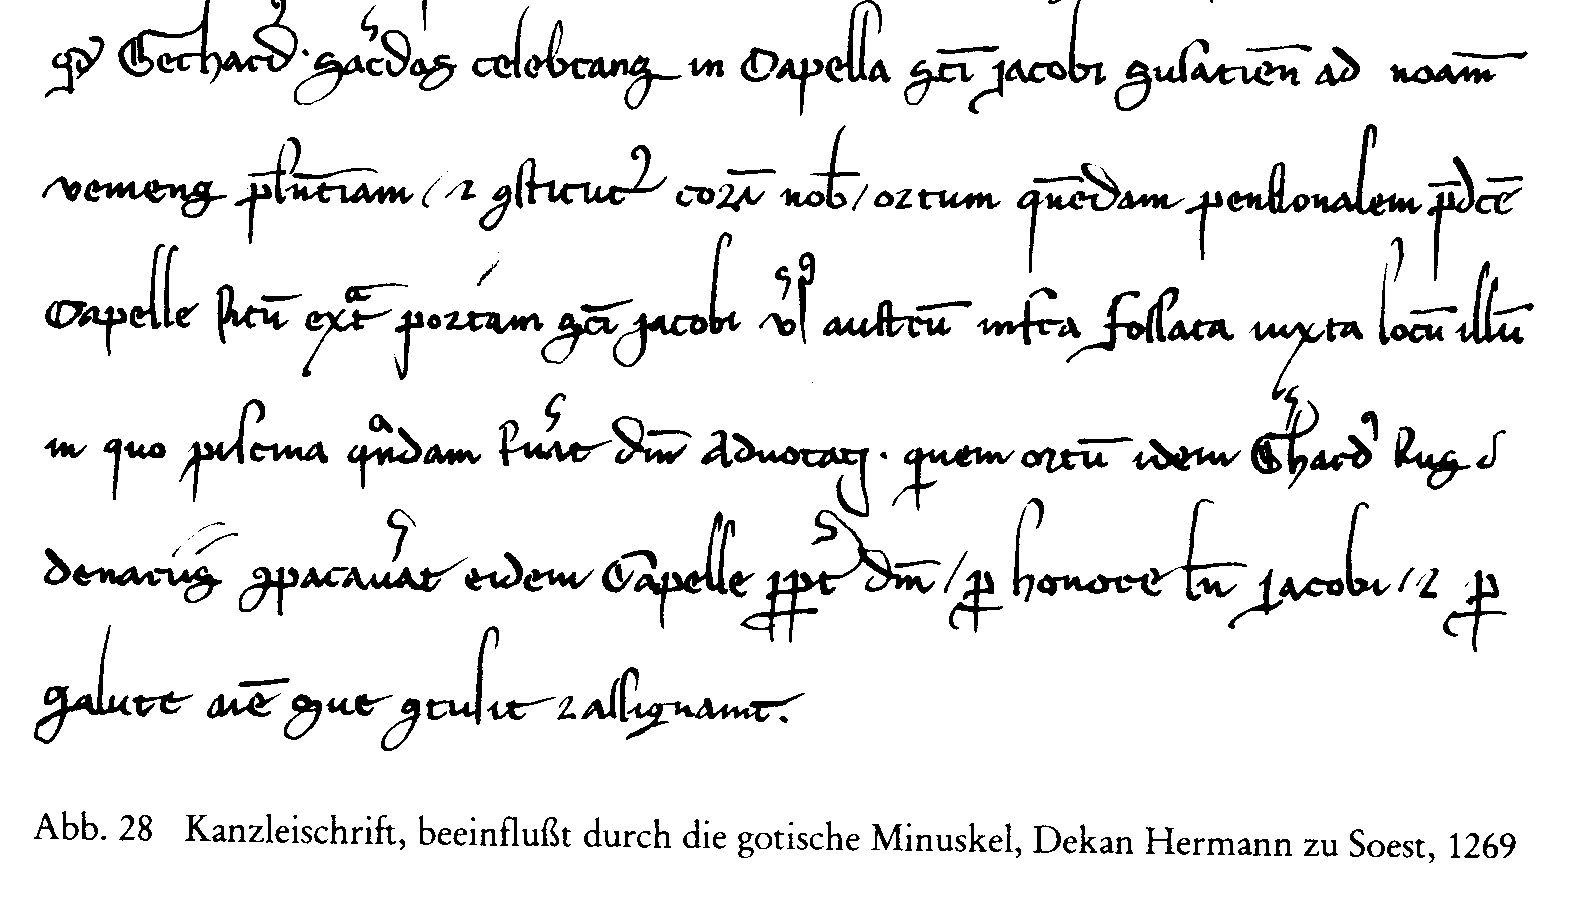 qd Gerhard' sacdos celebrans in Capella sci jacobi susacien ad nram
veniens psentiam / ⁊ ꝯstitut' coram nob / ortum quendam pensionalem pdce
Capelle situ extra portam sci jacobi vsus austru infra fossata iuxta locu illu
in quo piscina quondam fuerat dni Aduocati · quem ortu idem Ghard' Rufi
denariis ꝯpacauerat eidem Capelle ppt dm / p honore bn jacobi / ⁊ p
salute aie sue ꝯtulit ⁊ assignauit.
Abb. 28 Kanzleischrift, beeinflußt durch die gotische Minuskel, Dekan Hermann zu Soest, 1269